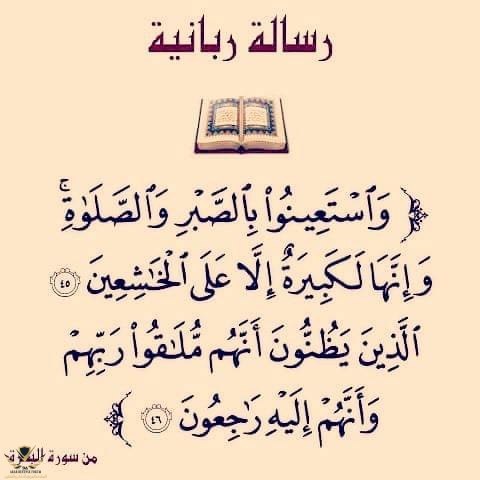 رسالة ربانية
﴿ وَٱسْتَعِينُوا۟ بِٱلصَّبْرِ وَٱلصَّلَوٰةِ ۚ
وَإِنَّهَا لَكَبِيرَةٌ إِلَّا عَلَى ٱلْخَـٰشِعِينَ ٤٥
ٱلَّذِينَ يَظُنُّونَ أَنَّهُم مُّلَـٰقُوا۟ رَبِّهِمْ
وَأَنَّهُمْ إِلَيْهِ رَٰجِعُونَ ٤٦ ﴾
من سورة البقرة